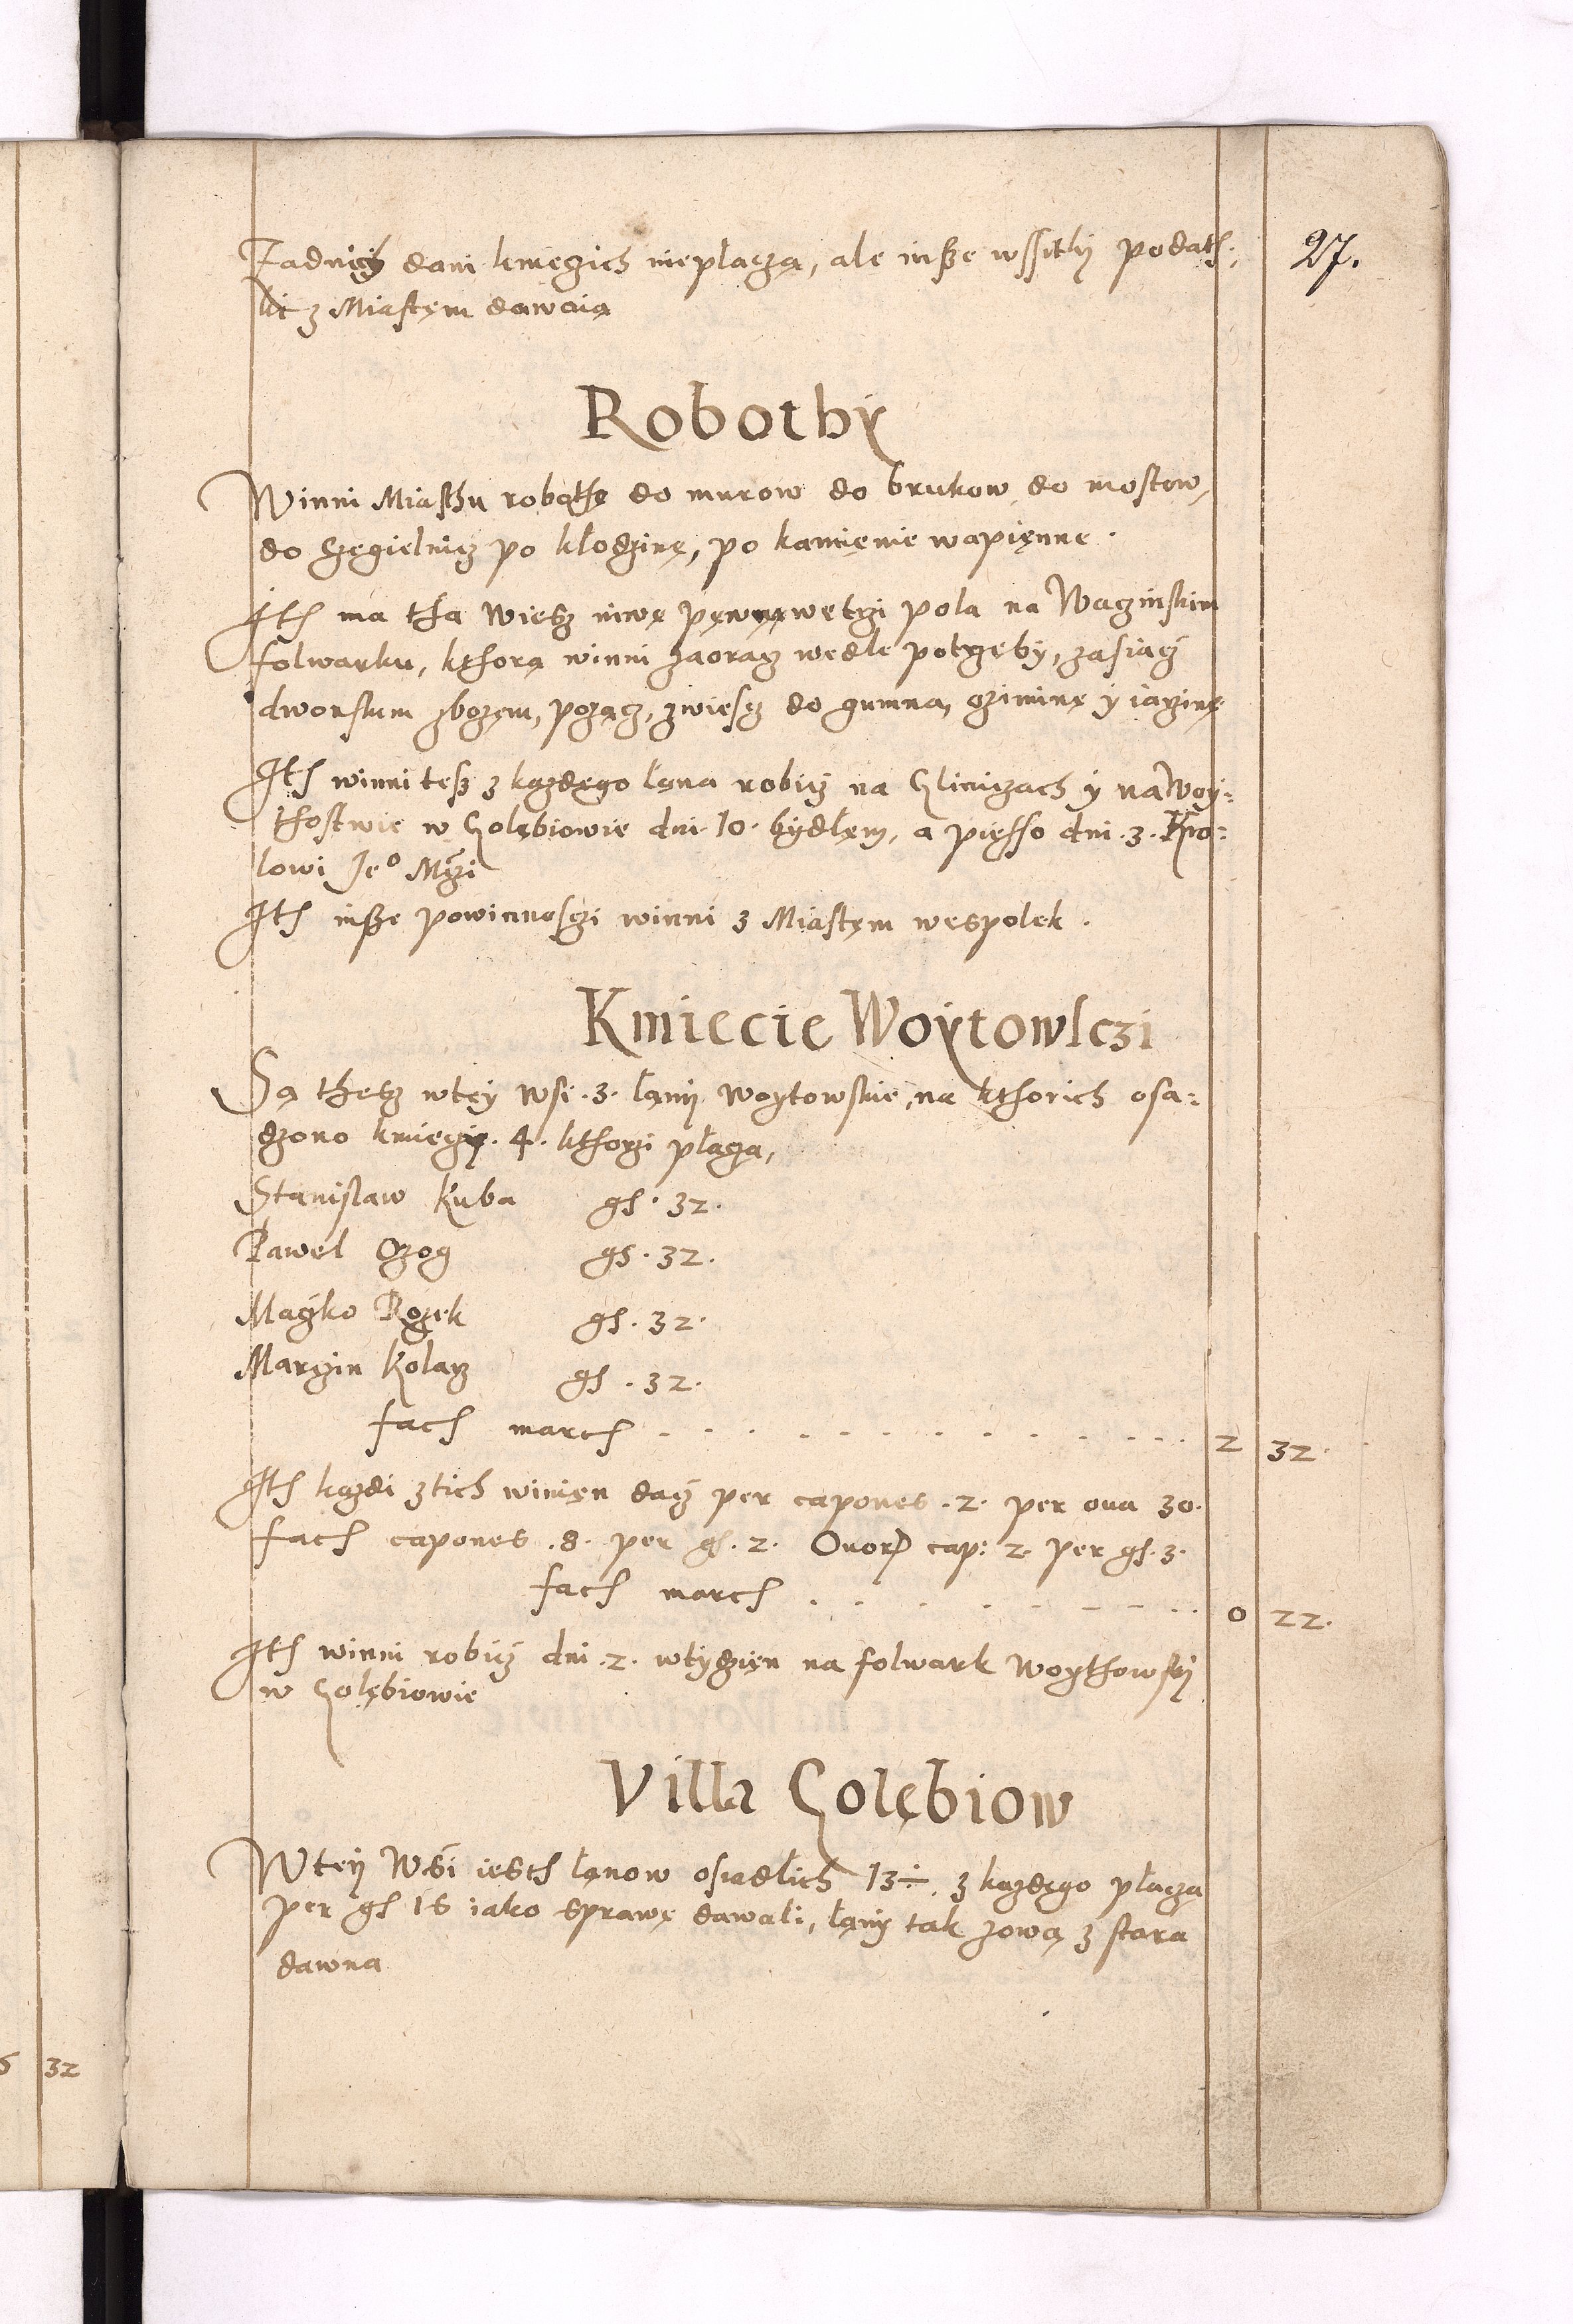 Zadnich dani kmieczich nieplaczą, ale insze wssitky podath:
27.
ki z Miastęm dawaią
Robothy
Winni Miasthu robothę do murow do brukow do mostow,
do Czegielnicz po kłodzinę, po kamięnie wapięnne.
Ith ma tha Wiesz niwę pęwnę wetrzi pola na Waczinskim
folwarku, kthorą winni zaoracz wedle potrzęby, zasiacz
dworskim zbożęm, pożącz, zwiesz do gumna, oziminę y iarzinę
Ith winni tesz z kazdęgo łąna robicz na Gliniczach y na Woy:
thostwie w Golębiowie dni 10. bydlęm, a pięsso dni .3. Kro:
lowi Je⁰ Mczi
Ith insze powinnosczi winni z Miastęm wespolek.
Kmiecie Woytowsczi
Są thesz wtęy Wsi .3. łąny Woytowskie, na kthorich osa:
dzono kmieczy .4. kthorzi płaczą,
Stanisław Kuba gs. 32.
Paweł Ozog gs. 32.
Maczko Rozek gs. 32.
Marczin Kolacz gs. 32.
fach march . . . . . . . . . . . 2 32.
Ith kazdi ztich winięn dacz per capones .2. per oua 30.
fach capones .8. per gs. 2. Ouor cap: 2. per gs. 3.
fach march . . . . . . . . . 0 22.
Ith winni robicz dni .2. wtydzięn na folwark Woythowsky
w Golębiowie
Villa Golębiow
Wtey Wsi iesth łanow osiadłich 13÷. z kazdęgo płaczą
per gs 16 iako sprawę dawali, łąny tak zową z stara
dawna
32